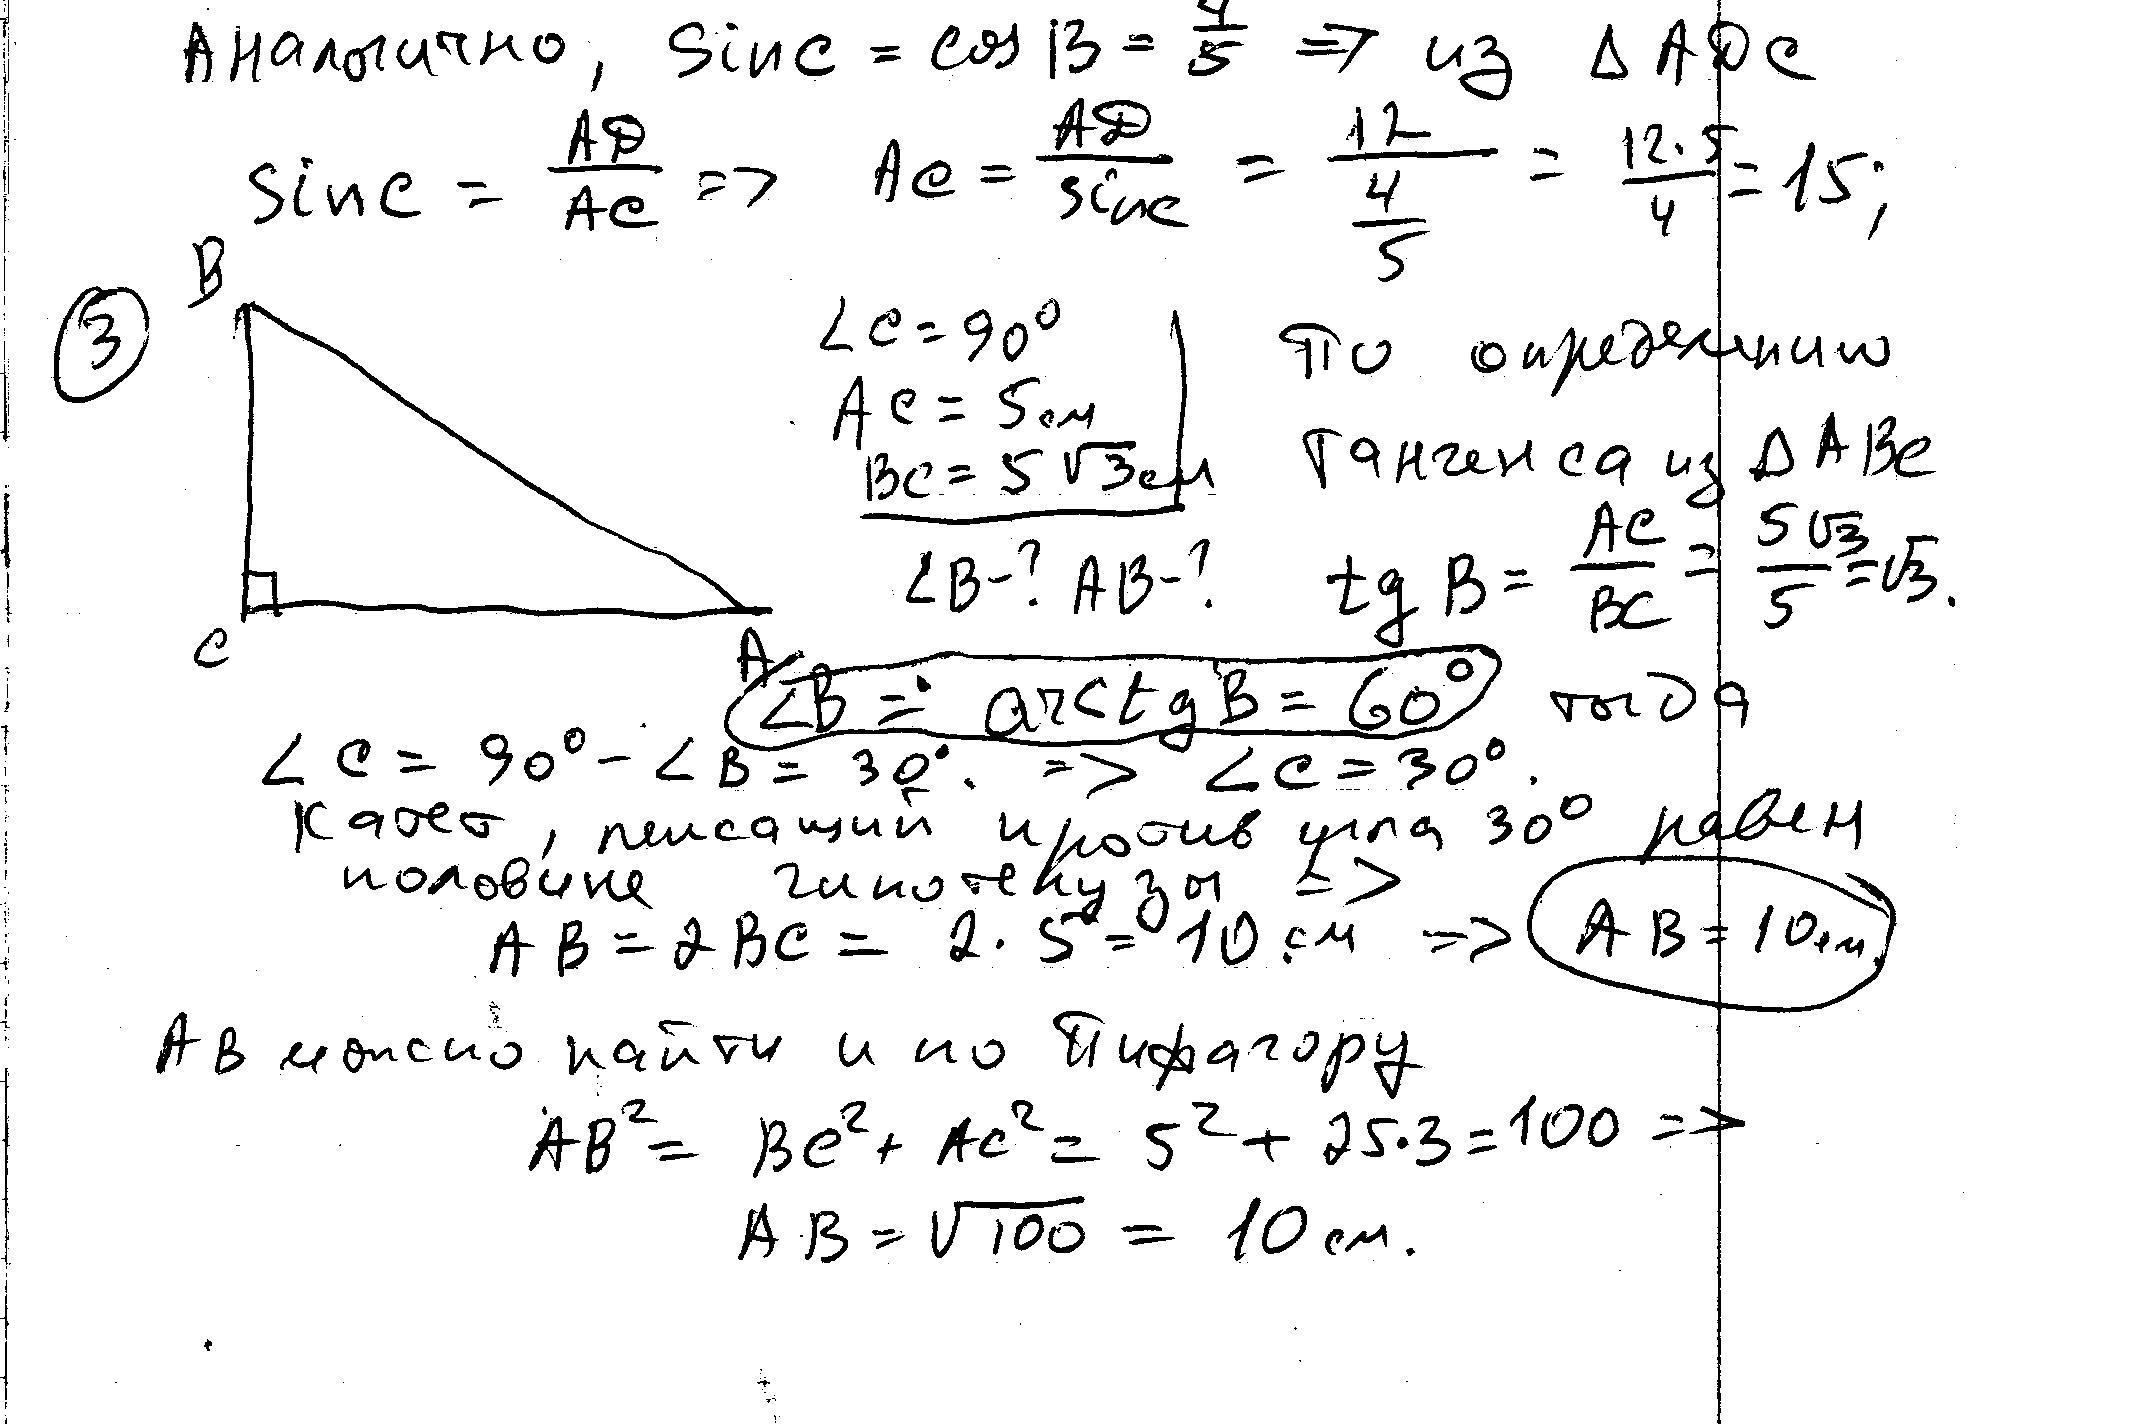 Аналогично, sin C = cos B = 4/5 => из Δ ADC
sin C = AD/AC => AC = AD/sin C = 12/(4/5) = 12·5/4 = 15;
B
③
∠C = 90°
AC = 5 см
BC = 5√3 см
∠B-? AB-?
C
A
По определению
тангенса из Δ ABC
tg B = AC/BC = 5√3/5 = √3.
∠B = arctg B = 60° тогда
∠C = 90° - ∠B = 30°. => ∠C = 30°.
Катет, лежащий против угла 30° равен
половине гипотенузы =>
AB = 2BC = 2·5 = 10 см => AB = 10 см.
AB можно найти и по Пифагору
AB² = BC² + AC² = 5² + 25·3 = 100 =>
AB = √100 = 10 см.